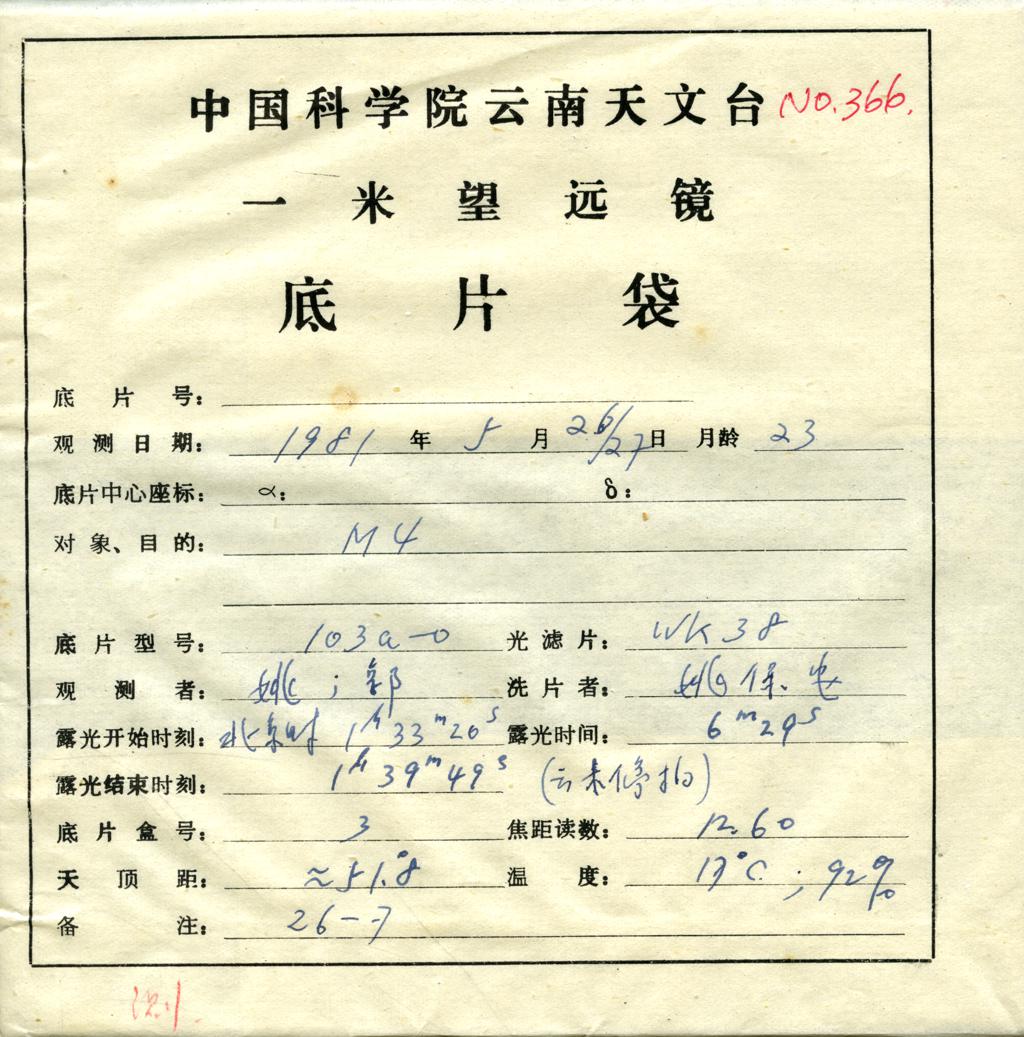 中国科学院云南天文台 NO.366.
一米望远镜
底片袋
底片号：
观测日期： 1981 年 5 月 26/27 日 月龄 23
底片中心座标： α： δ：
对象、目的： M4
底片型号： 103a-O 光滤片： WK38
观测者： 姚；郭 洗片者： 姚保
露光开始时刻： 北京时 1h33m20s 露光时间： 6m29s
露光结束时刻： 1h39m49s （云来停拍）
底片盒号： 3 焦距读数： 12.60
天顶距： ≈51.°8 温度： 17°C；92%
备注： 26-7
测